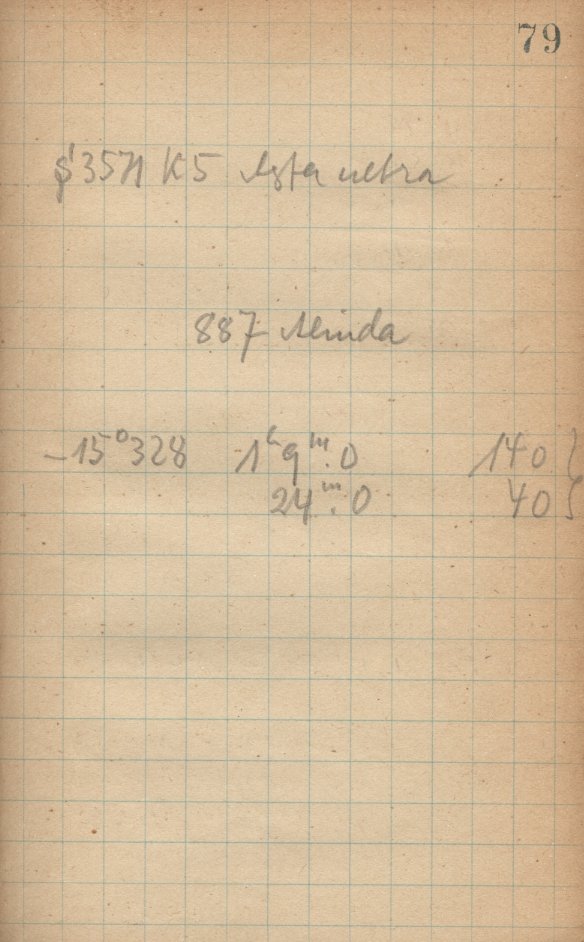 79
3571 K5
887 Alinda
-15°328 1ʰ9ᵐ.0 140 }
24ᵐ.0 40 }